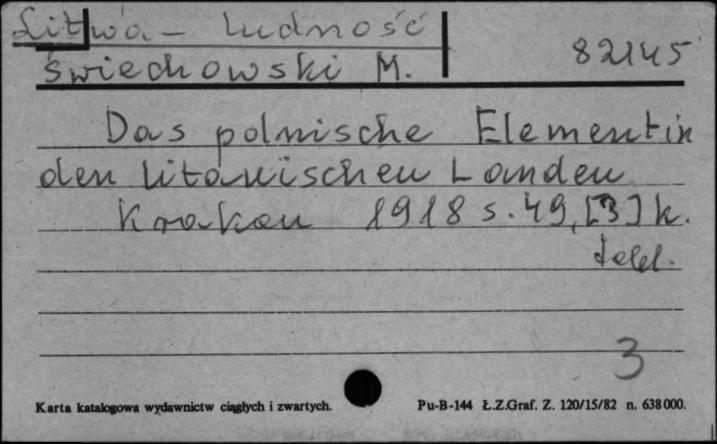 Litwa - ludność
Świechowski M.
82145
Das polnische Element in
den litauischen Landen
Krakau 1918 s. 49, [3] k.
tabl.
3
Karta katalogowa wydawnictw ciągłych i zwartych.
Pu-B-144 Ł.Z.Graf. Z. 120/15/82 n. 638000.